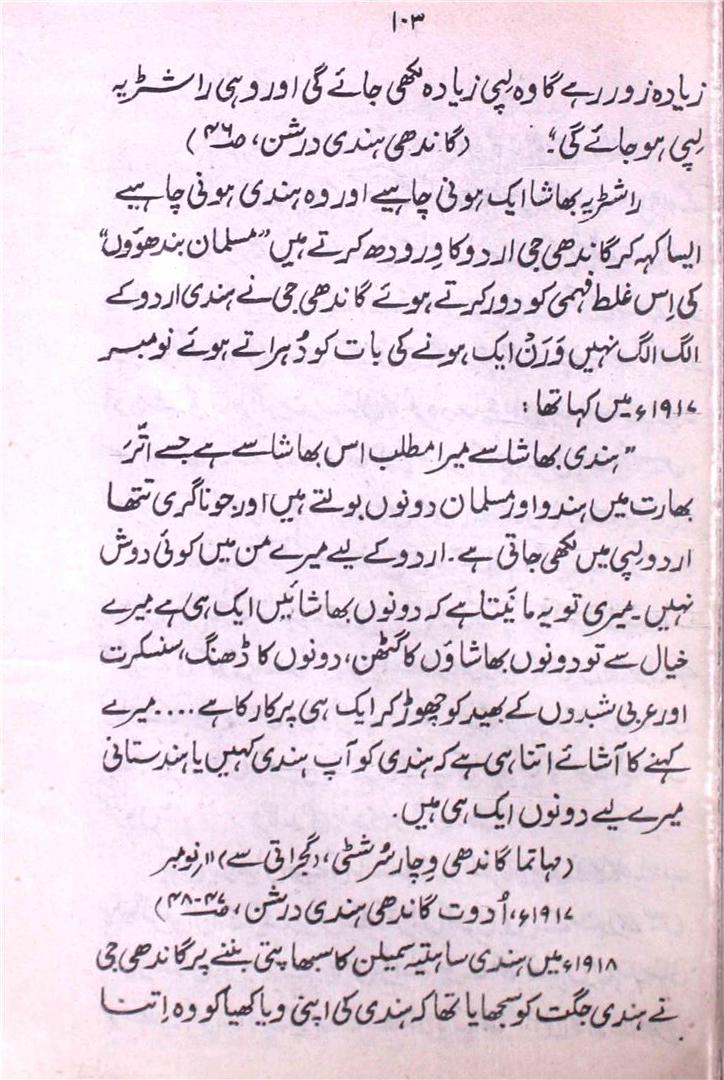 ۱۰۳
زیادہ زور رہے گا وہ لپی زیادہ لکھی جائے گی اور وہی راشٹریہ
لپی ہو جائے گی‘‘ (گاندھی ہندی درشن، صـ۴۶)
راشٹریہ بھاشا ایک ہونی چاہیے اور وہ ہندی ہونی چاہیے
ایسا کہہ کر گاندھی جی اردو کا وِرودھ کرتے ہیں ’’مسلمان بندھوؤں‘‘
کی اِس غلط فہمی کو دور کرتے ہوئے گاندھی جی نے ہندی اردو کے
الگ الگ نہیں وَرَنْ ایک ہونے کی بات کو دُہراتے ہوئے نومبر
۱۹۱۷ء میں کہا تھا:
’’ہندی بھاشا سے میرا مطلب اس بھاشا سے ہے جسے اتّر
بھارت میں ہندو اور مسلمان دونوں بولتے ہیں اور جو ناگری تتھا
اردو لپی میں لکھی جاتی ہے۔ اردو کے لیے میرے من میں کوئی دوش
نہیں۔ میری تو یہ مانیَتا ہے کہ دونوں بھاشائیں ایک ہی ہے میرے
خیال سے تو دونوں بھاشاؤں کا گٹھن، دونوں کا ڈھنگ، سنسکرت
اور عربی شبدوں کے بھید کو چھوڑ کر ایک ہی پرکار کا ہے .... میرے
کہنے کا آشائے اتنا ہی ہے کہ ہندی کو آپ ہندی کہیں یا ہندستانی
میرے لیے دونوں ایک ہی ہیں۔
(مہاتما گاندھی وِچار سُرشٹی، (گجراتی سے) ۱۱ نومبر
۱۹۱۷ء، اُدوت گاندھی ہندی درشن، صـ۴۷-۴۸)
۱۹۱۸ء میں ہندی ساہتیہ سمیلن کا سبھاپتی بننے پر گاندھی جی
نے ہندی جگت کو سجھایا تھا کہ ہندی کی اپنی ویاکھیا کو وہ اِتنا